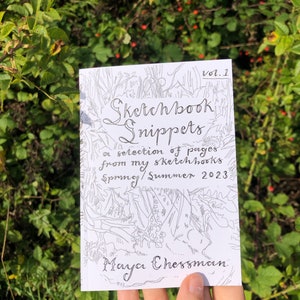 vol. 1
Sketchbook
Snippets
a selection of pages
from my sketchbooks
Spring/Summer 2023
Maya Chessman